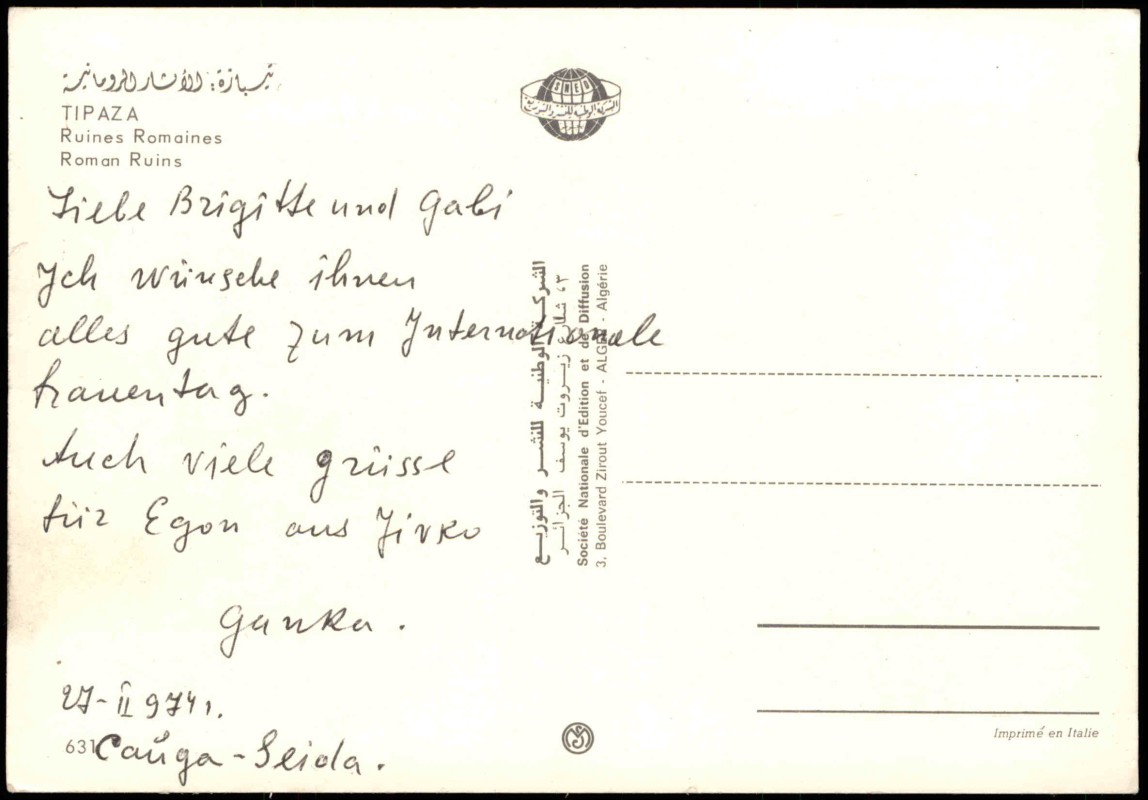 تيبازة: الأثار الرومانية
TIPAZA
Ruines Romaines
Roman Ruins
SNED
الشركة الوطنية للنشر والتوزيع
Liebe Brigitte und Gabi
Ich wünsche ihnen
alles gute zum Internationale
frauentag.
Auch viele grüsse
für Egon aus Jivko
Ganka.
27-II 974 г.
631
Саига-Seida.
الشركة الوطنية للنشر والتوزيع
٣، شارع زيروت يوسف الجزائر
Société Nationale d'Edition et de Diffusion
3, Boulevard Zirout Youcef - ALGER - Algérie
Imprimé en Italie